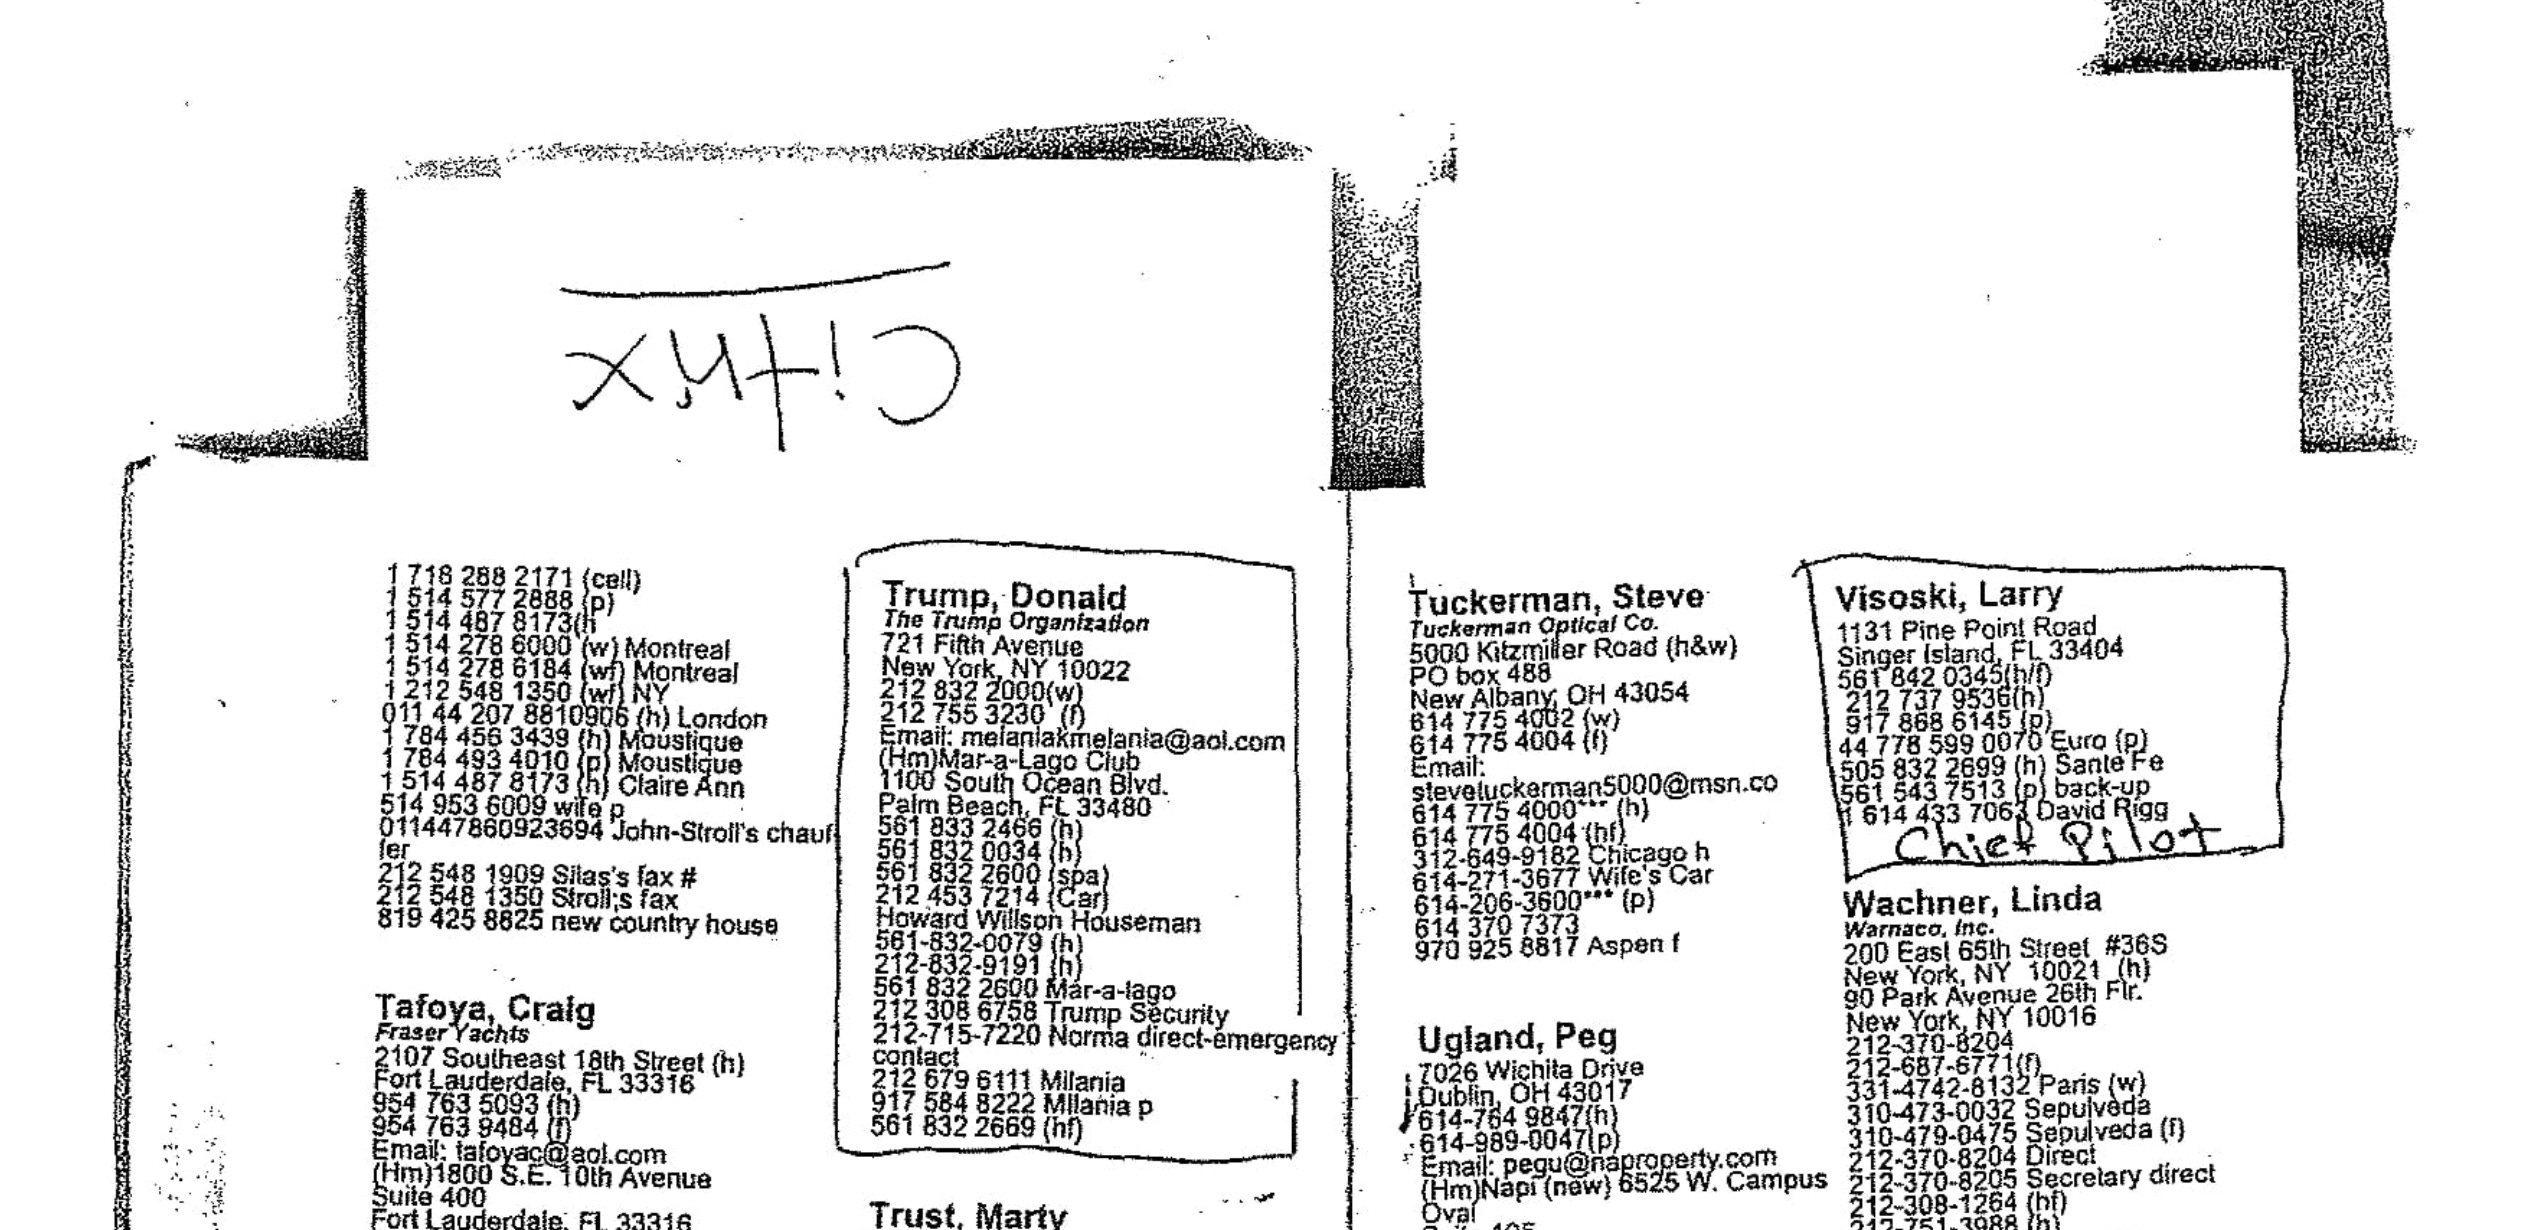 1 718 288 2171 (cell)
1 514 577 2888 (p)
1 514 487 8173(h
1 514 278 6000 (w) Montreal
1 514 278 6184 (wf) Montreal
1 212 548 1350 (wf) NY
011 44 207 8810906 (h) London
1 784 456 3439 (h) Moustique
1 784 493 4010 (p) Moustique
1 514 487 8173 (h) Claire Ann
514 953 6009 wife p
011447860923694 John-Stroll's chauf
fer
212 548 1909 Silas's fax #
212 548 1350 Stroll;s fax
819 425 8825 new country house
Tafoya, Craig
Fraser Yachts
2107 Southeast 18th Street (h)
Fort Lauderdale, FL 33316
954 763 5093 (h)
954 763 9484 (f)
Email: tafoyac@aol.com
(Hm)1800 S.E. 10th Avenue
Suite 400
Fort Lauderdale, FL 33316
Trump, Donald
The Trump Organization
721 Fifth Avenue
New York, NY 10022
212 832 2000(w)
212 755 3230 (f)
Email: melaniakmelania@aol.com
(Hm)Mar-a-Lago Club
1100 South Ocean Blvd.
Palm Beach, FL 33480
561 833 2466 (h)
561 832 0034 (h)
561 832 2600 (spa)
212 453 7214 (Car)
Howard Willson Houseman
561-832-0079 (h)
212-832-9191 (h)
561 832 2600 Mar-a-lago
212 308 6758 Trump Security
212-715-7220 Norma direct-emergency
contact
212 679 6111 Milania
917 584 8222 Milania p
561 832 2669 (hf)
Trust, Marty
Tuckerman, Steve
Tuckerman Optical Co.
5000 Kitzmiller Road (h&w)
PO box 488
New Albany, OH 43054
614 775 4002 (w)
614 775 4004 (f)
Email:
stevetuckerman5000@msn.co
614 775 4000*** (h)
614 775 4004 (hf)
312-649-9182 Chicago h
614-271-3677 Wife's Car
614-206-3600*** (p)
614 370 7373
970 925 8817 Aspen f
Ugland, Peg
7026 Wichita Drive
Dublin, OH 43017
614-764 9847(h)
614-989-0047(p)
Email: pegu@naproperty.com
(Hm)Napi (new) 6525 W. Campus
Oval
Visoski, Larry
1131 Pine Point Road
Singer Island, FL 33404
561 842 0345(h/f)
212 737 9536(h)
917 868 6145 (p)
44 778 599 0070 Euro (p)
505 832 2699 (h) Sante Fe
561 543 7513 (p) back-up
1 614 433 7063 David Rigg
Chief Pilot
Wachner, Linda
Warnaco, Inc.
200 East 65th Street #36S
New York, NY 10021 (h)
90 Park Avenue 26th Flr.
New York, NY 10016
212-370-8204
212-687-6771(f)
331-4742-8132 Paris (w)
310-473-0032 Sepulveda
310-479-0475 Sepulveda (f)
212-370-8204 Direct
212-370-8205 Secretary direct
212-308-1264 (hf)
212-751-3988 (h)